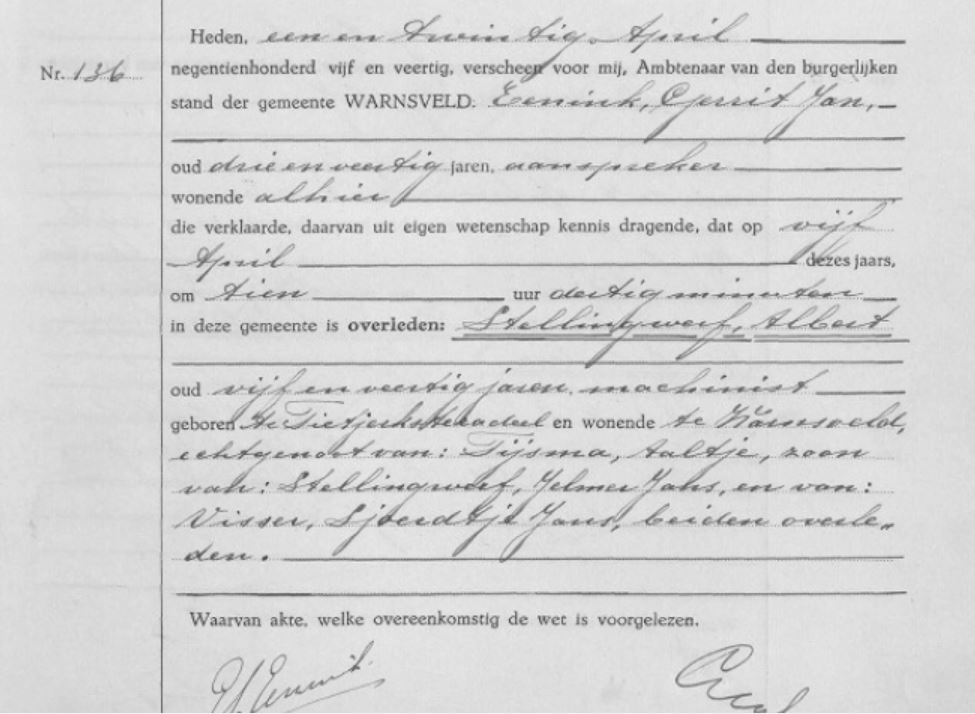 Heden, een en twintig April
Nr. 136
negentienhonderd vijf en veertig, verscheen voor mij, Ambtenaar van den burgerlijken
stand der gemeente WARNSVELD: Eenink, Gerrit Jan,
oud drie en veertig jaren, aanspreker
wonende alhier
die verklaarde, daarvan uit eigen wetenschap kennis dragende, dat op vijf
April dezes jaars,
om tien uur dertig minuten
in deze gemeente is overleden: Stellingwerf, Albert
oud vijf en veertig jaren, machinist
geboren te Tietjerksteradeel en wonende te Warnsveld,
echtgenoot van: Tijsma, Aaltje, zoon
van: Stellingwerf, Jelmer Jans, en van:
Visser, Sjoerdtje Jans, beiden overle„
den.
Waarvan akte, welke overeenkomstig de wet is voorgelezen.